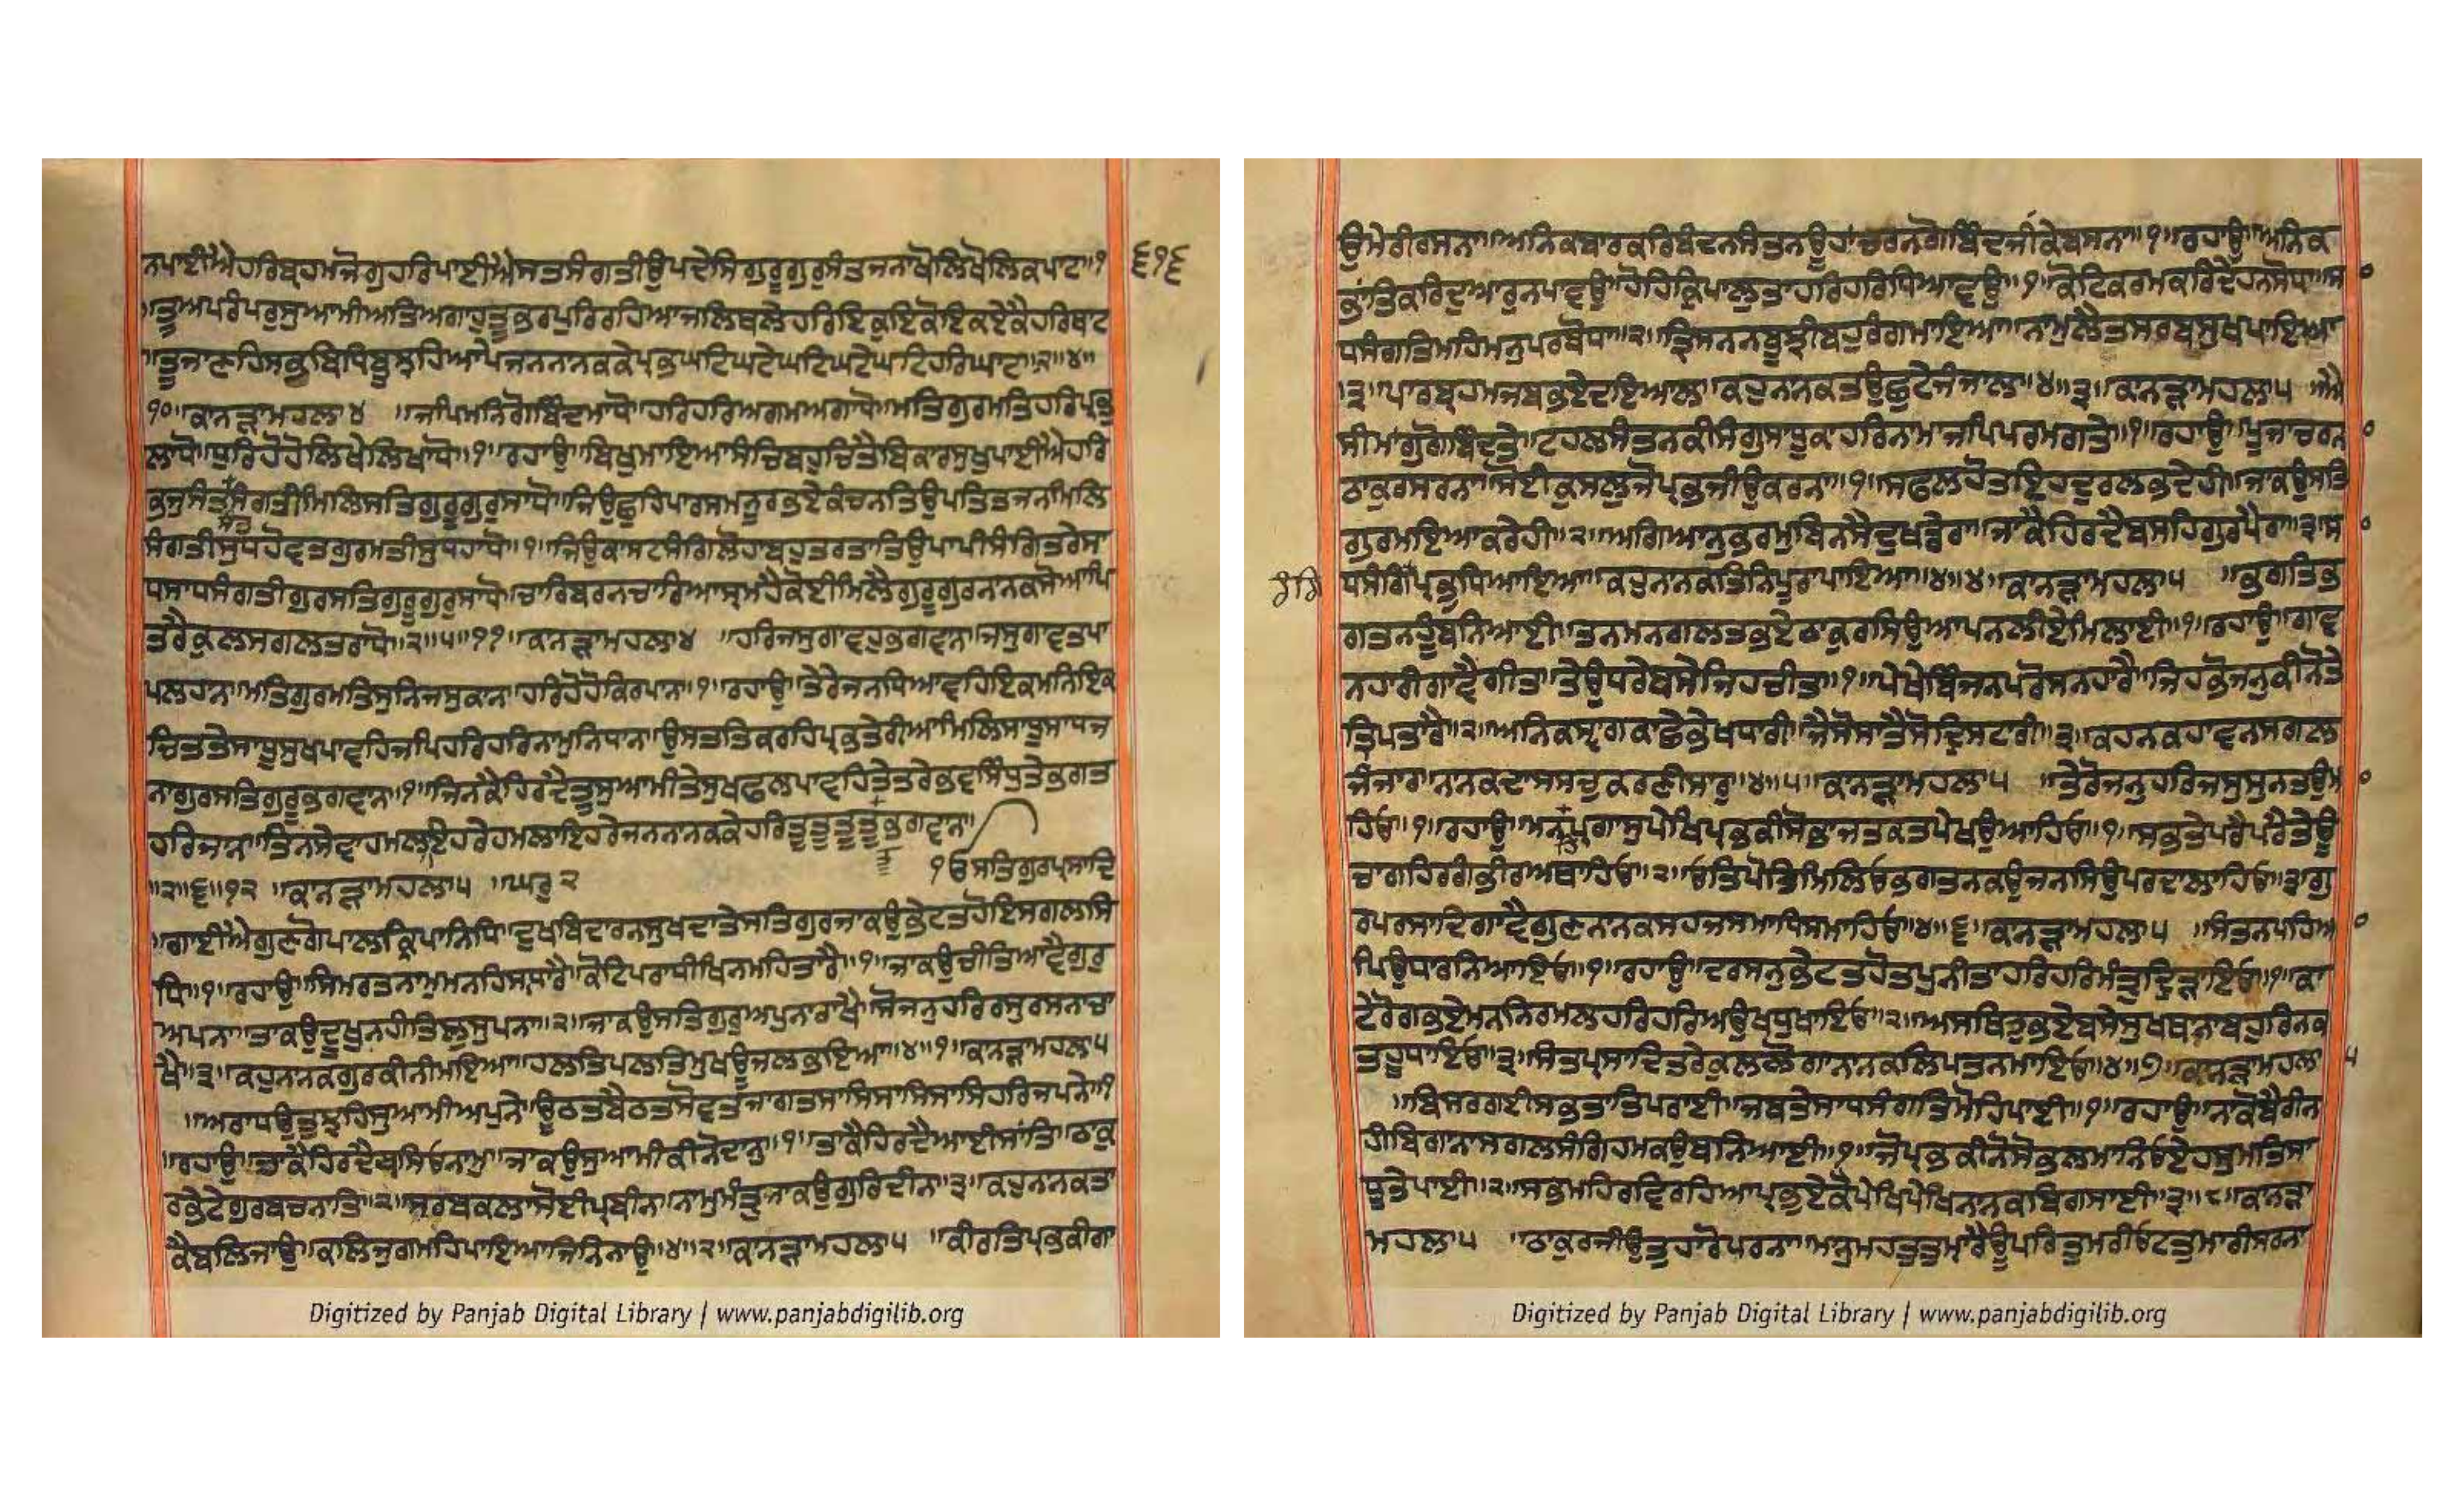 ਨਪਾਈਐਹਰਿਬ੍ਰਹਮਜੋਗੁਹਰਿਪਾਈਐਸਤਸੰਗਤੀਉਪਦੇਸਿਗੁਰੂਗੁਰਸੰਤਜਨਾਖੋਲਿਖੋਲਿਕਪਾਟ॥੧ ੬੧੬
॥ਤੂਅਪਰੰਪਰਸੁਆਮੀਅਤਿਅਗਾਹੁਤੂਭਰਪੁਰਿਰਹਿਆਜਲਿਥਲੇਹਰਿਇਕੁਇਕੋਇਕਏਕੈਹਰਿਥਾਟ
॥ਤੂਜਾਣਹਿਸਭਬਿਧਿਬੂਝਹਿਆਪੇਜਨਨਾਨਕਕੇਪ੍ਰਭਘਟਿਘਟੇਘਟਿਘਟੇਘਟਿਹਰਿਘਾਟ॥੨॥੪॥
੧੦॥ਕਾਨੜਾਮਹਲਾ੪ ॥ਜਪਿਮਨਗੋਬਿੰਦਮਾਧੋ॥ਹਰਿਹਰਿਅਗਮਅਗਾਧੋ॥ਮਤਿਗੁਰਮਤਿਹਰਿਪ੍ਰਭੁ
ਲਾਧੋ॥ਧੁਰਿਹੋਹੋਲਿਖੇਲਿਖਾਧੋ॥੧॥ਰਹਾਉ॥ਬਿਖੁਮਾਇਆਸੰਚਿਬਹੁਚਿਤੈਬਿਕਾਰਸੁਖੁਪਾਈਐਹਰਿ
ਭਜੁਸੰਤਸੰਗਤੀਮਿਲਿਸਤਿਗੁਰੂਗੁਰਸਾਧੋ॥ਜਿਉਛੁਹਿਪਾਰਸਮਨੂਰਭਏਕੰਚਨਤਿਉਪਤਿਤਜਨਮਿਲਿ
ਸੰਗਤੀਸੁਧਹੋਵਤਗੁਰਮਤੀਸੁਧਹਾਧੋ॥੧॥ਜਿਉਕਾਸਟਸੰਗਿਲੋਹਾਬਹੁਤਰਤਾਤਿਉਪਾਪੀਸੰਗਿਤਰੇਸਾ
ਧਸਾਧਸੰਗਤੀਗੁਰਸਤਿਗੁਰੂਗੁਰਸਾਧੋ॥ਚਾਰਿਬਰਨਚਾਰਿਆਸ੍ਰਮਹੈਕੋਈਮਿਲੈਗੁਰੂਗੁਰਨਾਨਕਸੋਆਪਿ
ਤਰੈਕੁਲਸਗਲਤਰਾਧੋ॥੨॥੫॥੧੧॥ਕਾਨੜਾਮਹਲਾ੪ ॥ਹਰਿਜਸੁਗਾਵਹੁਭਗਵਾਨ॥ਜਸੁਗਾਵਤਪਾ
ਪਲਹਾਨ॥ਮਤਿਗੁਰਮਤਿਸੁਨਿਜਸੁਕਾਨ॥ਹਰਿਹੋਹੋਕਿਰਪਾਨ॥੧॥ਰਹਾਉ॥ਤੇਰੇਜਨਧਿਆਵਹਿਇਕਮਨਿਇਕ
ਚਿਤਤੇਸਾਧੂਸੁਖਪਾਵਹਿਜਪਿਹਰਿਹਰਿਨਾਮੁਨਿਧਾਨ॥ਉਸਤਤਿਕਰਹਿਪ੍ਰਭਤੇਰੀਆਮਿਲਿਸਾਧੂਸਾਧਜ
ਨਾਗੁਰਸਤਿਗੁਰੂਭਗਵਾਨ॥੧॥ਜਿਨਕੈਹਿਰਦੈਤੂਸੁਆਮੀਤੇਸੁਖਫਲਪਾਵਹਿਤੇਤਰੇਭਵਸਿੰਧੁਤੇਭਗਤ
ਹਰਿਜਾਨ॥ਤਿਨਸੇਵਾਹਮਲਾਇਹਰੇਹਮਲਾਇਹਰੇਜਨਨਾਨਕਕੇਹਰਿਤੂਤੂਤੂਤੂਤੂਭਗਵਾਨ॥
॥੨॥੬॥੧੨ ॥ਕਾਨੜਾਮਹਲਾ੫ ॥ਘਰੁ੨ ੴਸਤਿਗੁਰਪ੍ਰਸਾਦਿ
॥ਗਾਈਐਗੁਣਗੋਪਾਲਕ੍ਰਿਪਾਨਿਧਿ॥ਦੁਖਬਿਦਾਰਨਸੁਖਦਾਤੇਸਤਿਗੁਰਜਾਕਉਭੇਟਤਹੋਇਸਗਲਸਿ
ਧਿ॥੧॥ਰਹਾਉ॥ਸਿਮਰਤਨਾਮੁਮਨਹਿਸਾਧਾਰੈ॥ਕੋਟਿਪਰਾਧੀਖਿਨਮਹਿਤਾਰੈ॥੧॥ਜਾਕਉਚੀਤਿਆਵੈਗੁਰੁ
ਅਪਨਾ॥ਤਾਕਉਦੂਖੁਨਹੀਤਿਲੁਸੁਪਨਾ॥੨॥ਜਾਕਉਸਤਿਗੁਰੁਅਪੁਨਾਰਾਖੈ॥ਸੋਜਨੁਹਰਿਰਸੁਰਸਨਾਚਾ
ਖੈ॥੩॥ਕਹੁਨਾਨਕਗੁਰਕੀਨੀਮਇਆ॥ਹਲਤਿਪਲਤਿਮੁਖਊਜਲਭਇਆ॥੪॥੧॥ਕਾਨੜਾਮਹਲਾ੫
॥ਅਰਾਧਉਤੁਝਹਿਸੁਆਮੀਅਪੁਨੇ॥ਊਠਤਬੈਠਤਸੋਵਤਜਾਗਤਸਾਸਿਸਾਸਿਸਾਸਿਹਰਿਜਪਨੇ॥੧
॥ਰਹਾਉ॥ਤਾਕੈਹਿਰਦੈਬਸਿਓਨਾਮੁ॥ਜਾਕਉਸੁਆਮੀਕੀਨੋਦਾਨੁ॥੧॥ਤਾਕੈਹਿਰਦੈਆਈਸਾਂਤਿ॥ਠਾਕੁ
ਰਭੇਟੇਗੁਰਬਚਨਾਤਿ॥੨॥ਸਰਬਕਲਾਸੋਈਪ੍ਰਬੀਨ॥ਨਾਮੁਮੰਤ੍ਰੁਜਾਕਉਗੁਰਿਦੀਨ॥੩॥ਕਹੁਨਾਨਕਤਾ
ਕੈਬਲਿਜਾਉ॥ਕਲਿਜੁਗਮਹਿਪਾਇਆਜਿਨਿਨਾਉ॥੪॥੨॥ਕਾਨੜਾਮਹਲਾ੫ ॥ਕੀਰਤਿਪ੍ਰਭਕੀਗਾ
Digitized by Panjab Digital Library | www.panjabdigilib.org
ਉਮੇਰੀਰਸਨਾ॥ਅਨਿਕਬਾਰਕਰਿਬੰਦਨਸੰਤਨਊਹਾਂਚਰਨਗੋਬਿੰਦਜੀਕੇਬਸਨਾ॥੧॥ਰਹਾਉ॥ਅਨਿਕ
ਭਾਂਤਿਕਰਿਦੁਆਰੁਨਪਾਵਉ॥ਹੋਹਿਕ੍ਰਿਪਾਲੁਤਾਹਰਿਹਰਿਧਿਆਵਉ॥੧॥ਕੋਟਿਕਰਮਕਰਿਦੇਹਨਸੋਧਾ॥ਸਾ
ਧਸੰਗਤਿਮਹਿਮਨੁਪਰਬੋਧਾ॥੨॥ਤ੍ਰਿਸਨਨਬੂਝੀਬਹੁਰੰਗਮਾਇਆ॥ਨਾਮੁਲੈਤਸਰਬਸੁਖਪਾਇਆ
॥੩॥ਪਾਰਬ੍ਰਹਮਜਬਭਏਦਇਆਲ॥ਕਹੁਨਾਨਕਤਉਛੂਟੇਜੰਜਾਲ॥੪॥੩॥ਕਾਨੜਾਮਹਲਾ੫ ॥ਐ
ਸੀਮਾਂਗੁਗੋਬਿਦਤੇ॥ਟਹਲਸੰਤਨਕੀਸੰਗੁਸਾਧੂਕਾਹਰਿਨਾਮਾਂਜਪਿਪਰਮਗਤੇ॥੧॥ਰਹਾਉ॥ਪੂਜਾਚਰਨ
ਠਾਕੁਰਸਰਨਾ॥ਸੋਈਕੁਸਲੁਜੋਪ੍ਰਭਜੀਉਕਰਨਾ॥੧॥ਸਫਲਹੋਤਇਹਦੁਰਲਭਦੇਹੀ॥ਜਾਕਉਸਤਿ
ਗੁਰਮਇਆਕਰੇਹੀ॥੨॥ਅਗਿਆਨੁਭਰਮੁਬਿਨਸੈਦੁਖਡੇਰਾ॥ਜਾਕੈਹਿਰਦੈਬਸਹਿਗੁਰਪੈਰਾ॥੩॥ਸਾ
ਧਸੰਗਿਪ੍ਰਭੁਧਿਆਇਆ॥ਕਹੁਨਾਨਕਤਿਨਿਪੂਰਾਪਾਇਆ॥੪॥੪॥ਕਾਨੜਾਮਹਲਾ੫ ॥ਭਗਤਿਭ
ਗਤਨਹੂੰਬਨਿਆਈ॥ਤਨਮਨਗਲਤਭਏਠਾਕੁਰਸਿਉਆਪਨਲੀਏਮਿਲਾਈ॥੧॥ਰਹਾਉ॥ਗਾਵ
ਨਹਾਰੀਗਾਵੈਗੀਤ॥ਤੇਉਧਰੇਬਸੇਜਿਹਚੀਤ॥੧॥ਪੇਖੇਬਿੰਜਨਪਰੋਸਨਹਾਰੈ॥ਜਿਹਭੋਜਨੁਕੀਨੋਤੇ
ਤ੍ਰਿਪਤਾਰੈ॥੨॥ਅਨਿਕਸ੍ਵਾਂਗਕਾਛੇਭੇਖਧਾਰੀ॥ਜੈਸੋਸਾਤੈਸੋਦ੍ਰਿਸਟਾਰੀ॥੩॥ਕਹਨਕਹਾਵਨਸਗਲ
ਜੰਜਾਰ॥ਨਾਨਕਦਾਸਸਚੁਕਰਣੀਸਾਰ॥੪॥੫॥ਕਾਨੜਾਮਹਲਾ੫ ॥ਤੇਰੋਜਨੁਹਰਿਜਸੁਸੁਨਤਉਮਾ
ਹਿਓ॥੧॥ਰਹਾਉ॥ਮਨਹਿਪ੍ਰਗਾਸੁਪੇਖਿਪ੍ਰਭਕੀਸੋਭਾਜਤਕਤਪੇਖਉਆਹਿਓ॥੧॥ਸਭਤੇਪਰੈਪਰੈਤੇਊ
ਚਾਗਹਿਰਗੰਭੀਰਅਥਾਹਿਓ॥੨॥ਓਤਿਪੋਤਿਮਿਲਿਓਭਗਤਨਕਉਜਨਸਿਉਪਰਦਾਲਾਹਿਓ॥੩॥ਗੁ
ਰਪਰਸਾਦਿਗਾਵੈਗੁਣਨਾਨਕਸਹਜਸਮਾਧਿਸਮਾਹਿਓ॥੪॥੬॥ਕਾਨੜਾਮਹਲਾ੫ ॥ਸੰਤਨਪਹਿਆ
ਪਿਉਧਾਰਨਿਆਇਓ॥੧॥ਰਹਾਉ॥ਦਰਸਨੁਭੇਟਤਹੋਤਪੁਨੀਤਾਹਰਿਹਰਿਮੰਤ੍ਰੁਦ੍ਰਿੜਾਇਓ॥੧॥ਕਾ
ਟੇਰੋਗਭਏਮਨਨਿਰਮਲਹਰਿਹਰਿਅਉਖਧੁਖਾਇਓ॥੨॥ਅਸਥਿਤਭਏਬਸੇਸੁਖਥਾਨਾਬਹੁਰਿਨਕ
ਤਹੂਧਾਇਓ॥੩॥ਸੰਤਪ੍ਰਸਾਦਿਤਰੇਕੁਲਲੋਗਾਨਾਨਕਲਿਪਤਨਮਾਇਓ॥੪॥੭॥ਕਾਨੜਾਮਹਲਾ ੫
॥ਬਿਸਰਗਈਸਭਤਾਤਿਪਰਾਈ॥ਜਬਤੇਸਾਧਸੰਗਤਿਮੋਹਿਪਾਈ॥੧॥ਰਹਾਉ॥ਨਾਕੋਬੈਰੀਨ
ਹੀਬਿਗਾਨਾਸਗਲਸੰਗਿਹਮਕਉਬਨਿਆਈ॥੧॥ਜੋਪ੍ਰਭਕੀਨੋਸੋਭਲਮਾਨਿਓਏਹਸੁਮਤਿਸਾ
ਧੂਤੇਪਾਈ॥੨॥ਸਭਮਹਿਰਵਿਰਹਿਆਪ੍ਰਭੁਏਕੈਪੇਖਿਪੇਖਿਨਾਨਕਬਿਗਸਾਈ॥੩॥੮॥ਕਾਨੜਾ
ਮਹਲਾ੫ ॥ਠਾਕੁਰਜੀਉਤੁਹਾਰੋਪਰਨਾ॥ਮਾਨੁਮਹਤੁਤੁਮਾਰੈਊਪਰਿਤੁਮਰੀਓਟਤੁਮਾਰੀਸਰਨਾ
Digitized by Panjab Digital Library | www.panjabdigilib.org